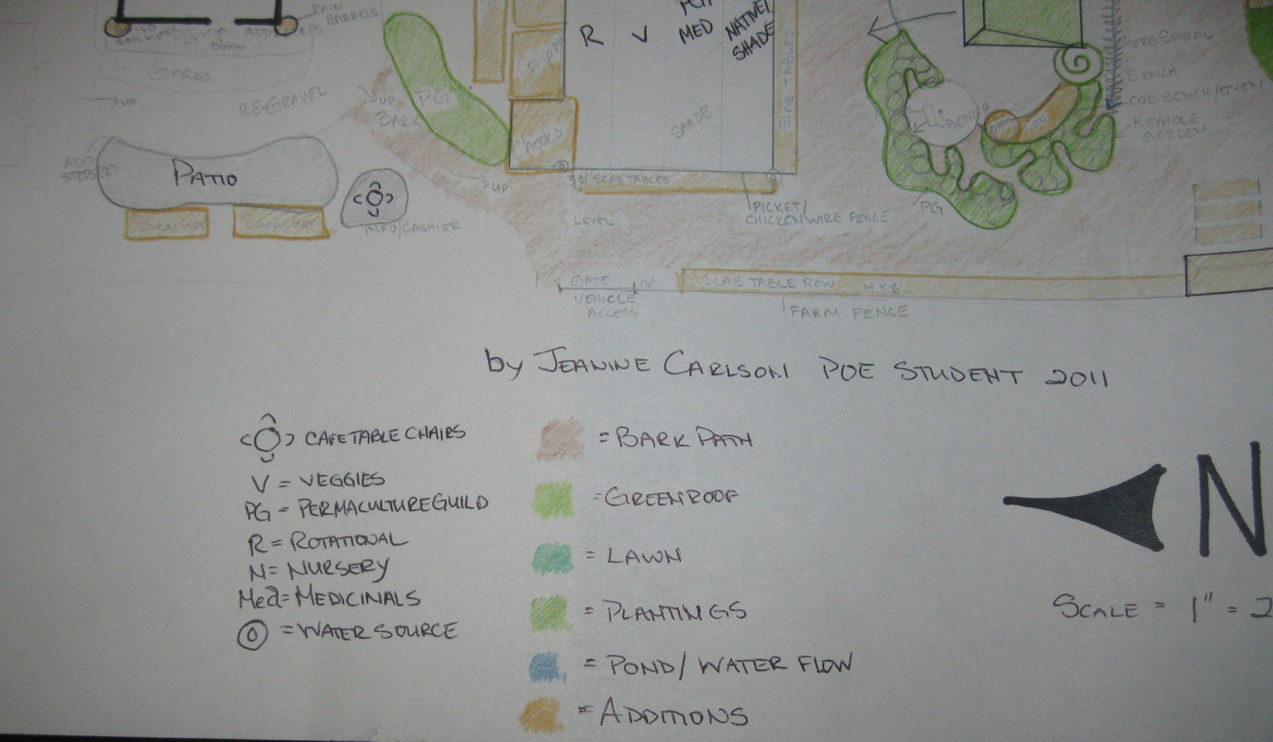 RAIN
BARRELS
DOWN
Grass
UP
RE-GRAVEL
UP
BARK
PG
ADD
STEPS(2)
PATIO
INFO/CASHIER
Chooks
UP
R
V
MED
NATIVE/
SHADE
SHADE
SLAB TABLES
SLAB TABLES
LEVEL
PICKET/
CHICKENWIRE FENCE
PG
BENCH
HERB SPIRAL
BENCH
COB BENCH/OVEN
KEYHOLE
GARDEN
GATE
VEHICLE
ACCESS
SLAB TABLE ROW
FARM FENCE
by JEANINE CARLSON PDE STUDENT 2011
CAFE TABLE CHAIRS
V = VEGGIES
PG = PERMACULTURE GUILD
R = ROTATIONAL
N = NURSERY
Med = MEDICINALS
= WATER SOURCE
= BARK PATH
= GREENROOF
= LAWN
= PLANTINGS
= POND/WATER FLOW
= ADDITIONS
N
SCALE = 1" = 2